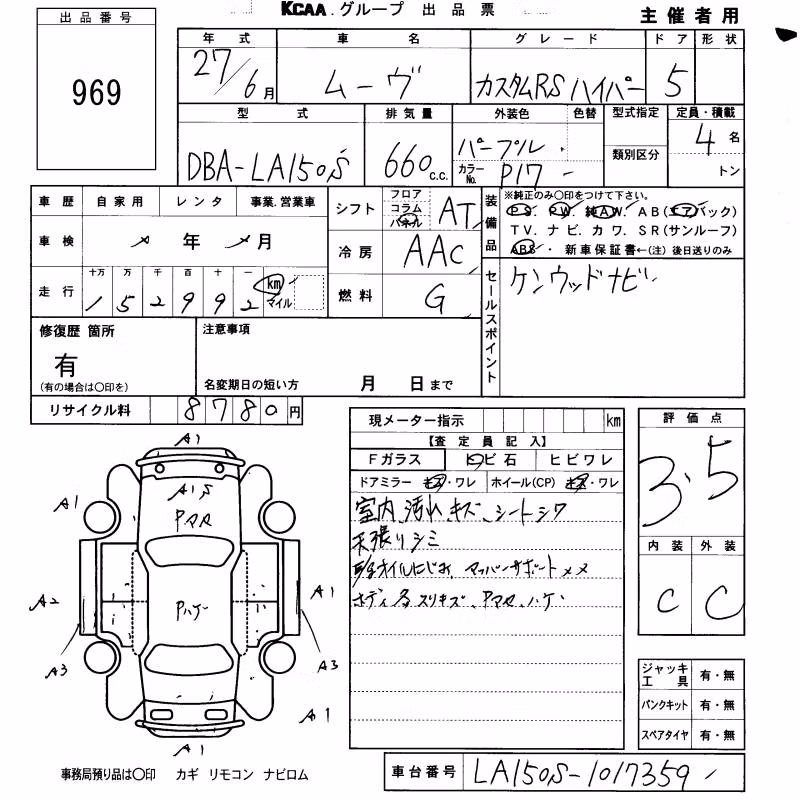 KCAA.グループ 出品票 主催者用
出品番号
969
年式 車名 グレード ドア 形状
27/6月 ムーヴ カスタムRSハイパー 5
型式 排気量 外装色 色替 型式指定 定員・積載
DBA-LA150S 660c.c. パープル 4名
カラーNo. P17 類別区分 トン
車歴 自家用 レンタ 事業.営業車
シフト フロア コラム パネル AT
装備品
※純正のみ〇印をつけて下さい。
PS. PW. 純AW. AB(エアバック)
TV. ナビ. カワ. SR(サンルーフ)
ABS・ 新車保証書←(注) 後日送りのみ
車検 年 月
冷房 AAC
走行 十万 万 千 百 十 一
152992 km マイル
燃料 G
セールスポイント
ケンウッドナビ
修復歴 箇所
有
(有の場合は〇印を)
注意事項
名変期日の短い方 月 日まで
リサイクル料 8780円
現メーター指示 km
【査定員記入】
Fガラス トビ石 ヒビワレ
ドアミラー キズ・ワレ ホイール(CP) キズ・ワレ
室内 汚れ キズ、シートシワ
天張りシミ
オイルにじみ、
ボディ 各 スリキズ、
評価点
3.5
内装 外装
C C
ジャッキ工具 有・無
パンクキット 有・無
スペアタイヤ 有・無
A1
A1S
A1
A2
A1
A3
A3
A1
A1
事務局預り品は〇印 カギ リモコン ナビロム
車台番号 LA150S-1017359